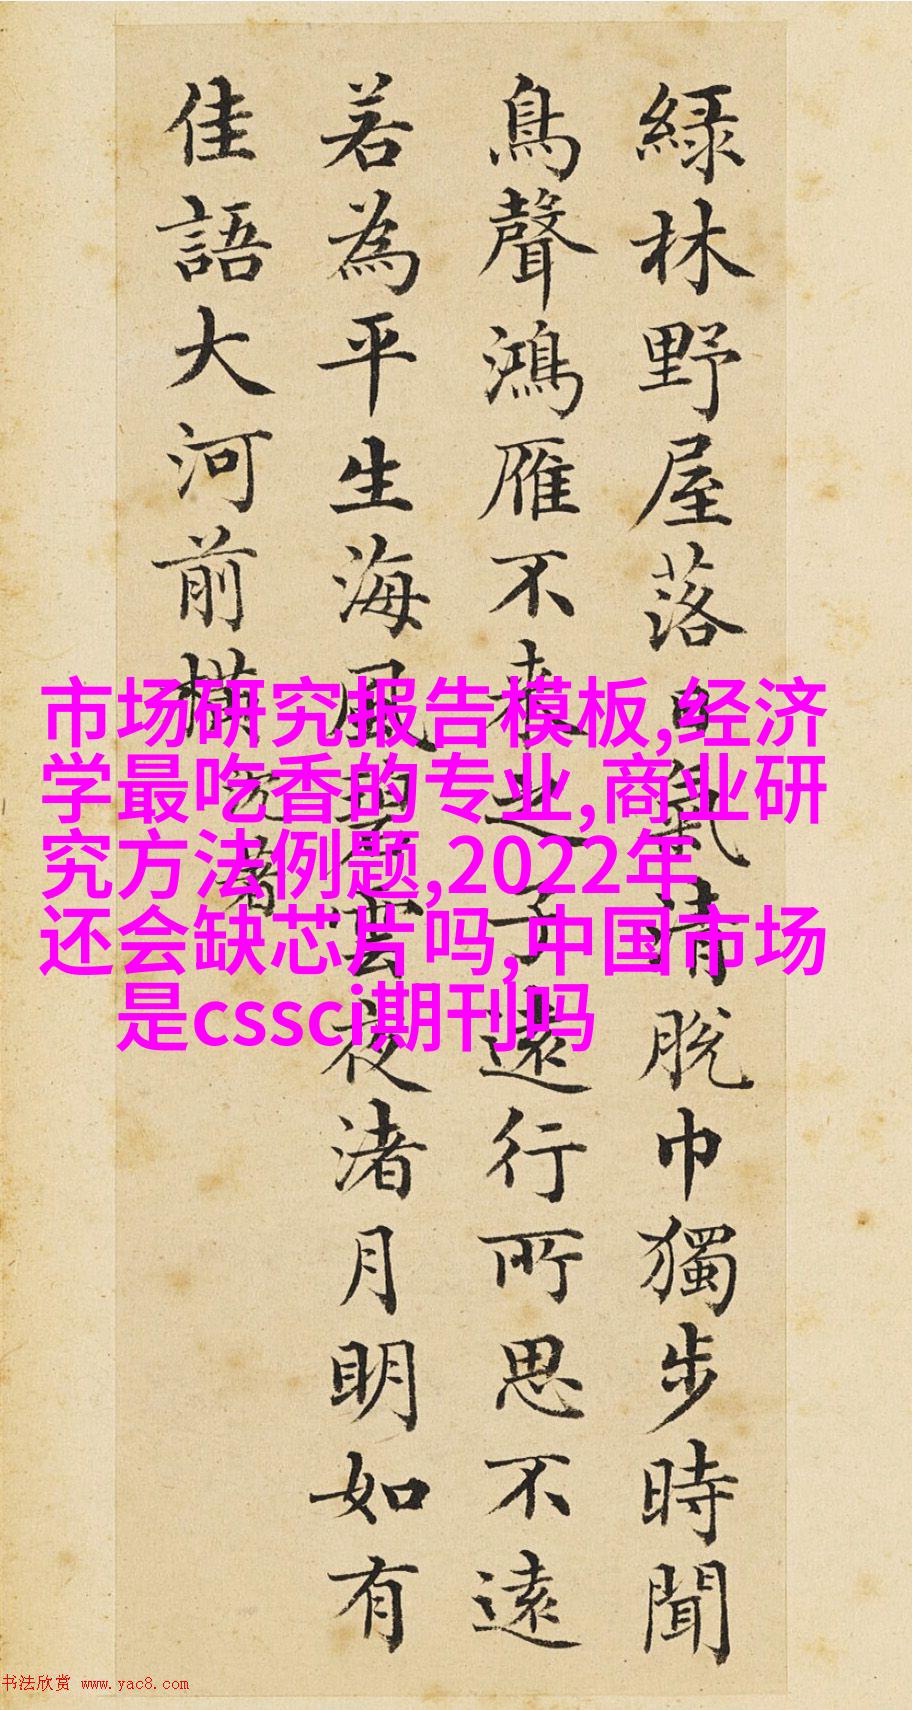 綠林野屋落日氣清脫巾獨步時聞
鳥聲鴻雁不來之子遠行所思不遠
若為平生海風碧雲夜渚月明如有
佳語大河前橫 沈著
市场研究报告模板,经济
学最吃香的专业,商业研
究方法例题,2022年
还会缺芯片吗,中国市场
是cssci期刊吗
书法欣赏 www.yac8.com